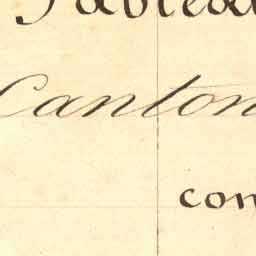 Tableau
Canton
con